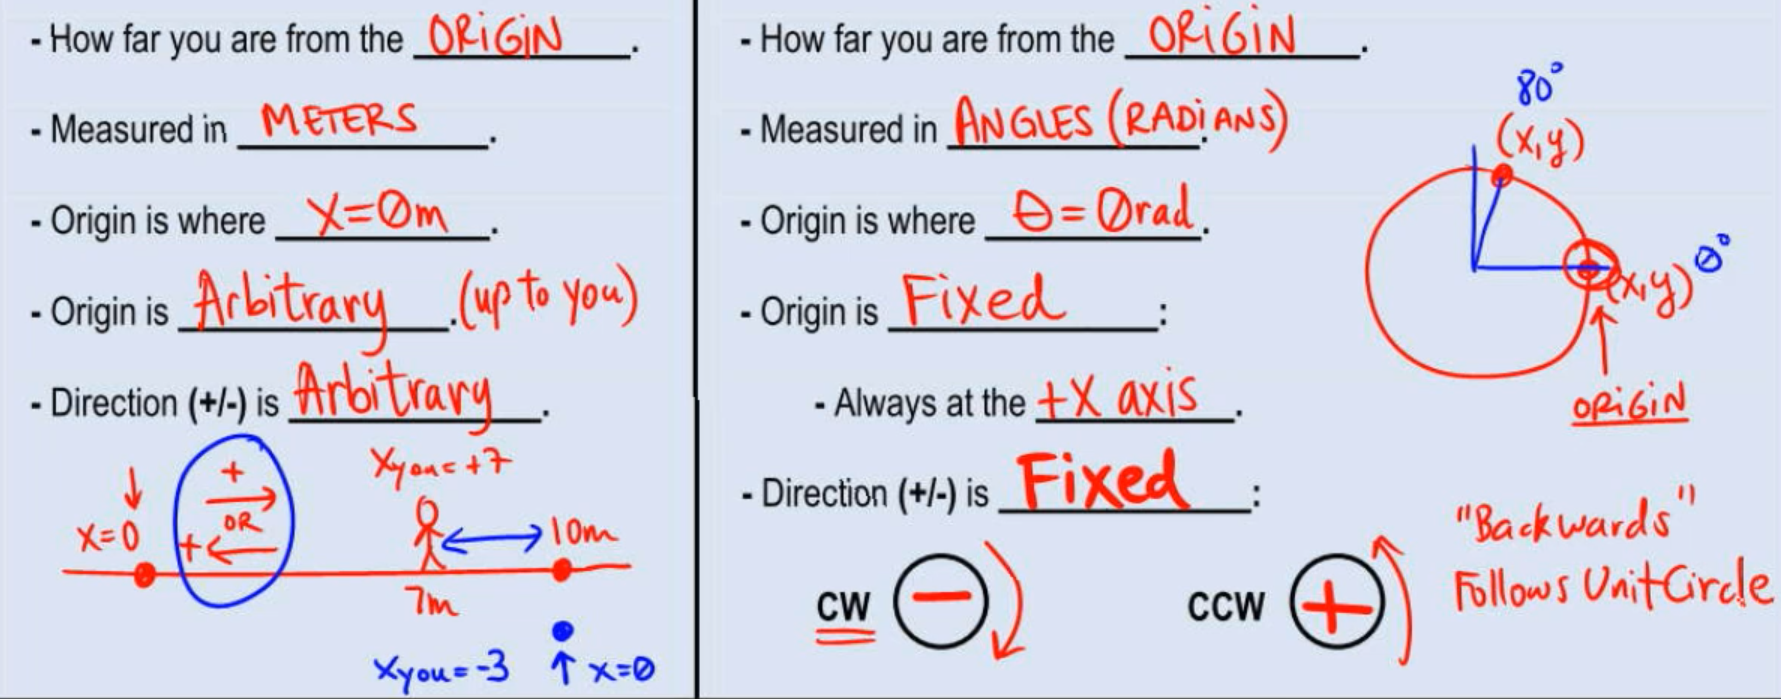 - How far you are from the ORiGiN.
- Measured in METERS.
- Origin is where X=0m.
- Origin is Arbitrary. (up to you)
- Direction (+/-) is Arbitrary.
+
OR
+
x=0
Xyou=+7
10m
7m
Xyou=-3
x=0
- How far you are from the ORiGiN.
- Measured in ANGLES (RADiANS).
- Origin is where θ=0rad.
- Origin is Fixed:
- Always at the +X axis.
- Direction (+/-) is Fixed:
CW −
CCW +
80°
(x,y)
0°
(x,y)
ORiGiN
"Backwards"
Follows Unit Circle